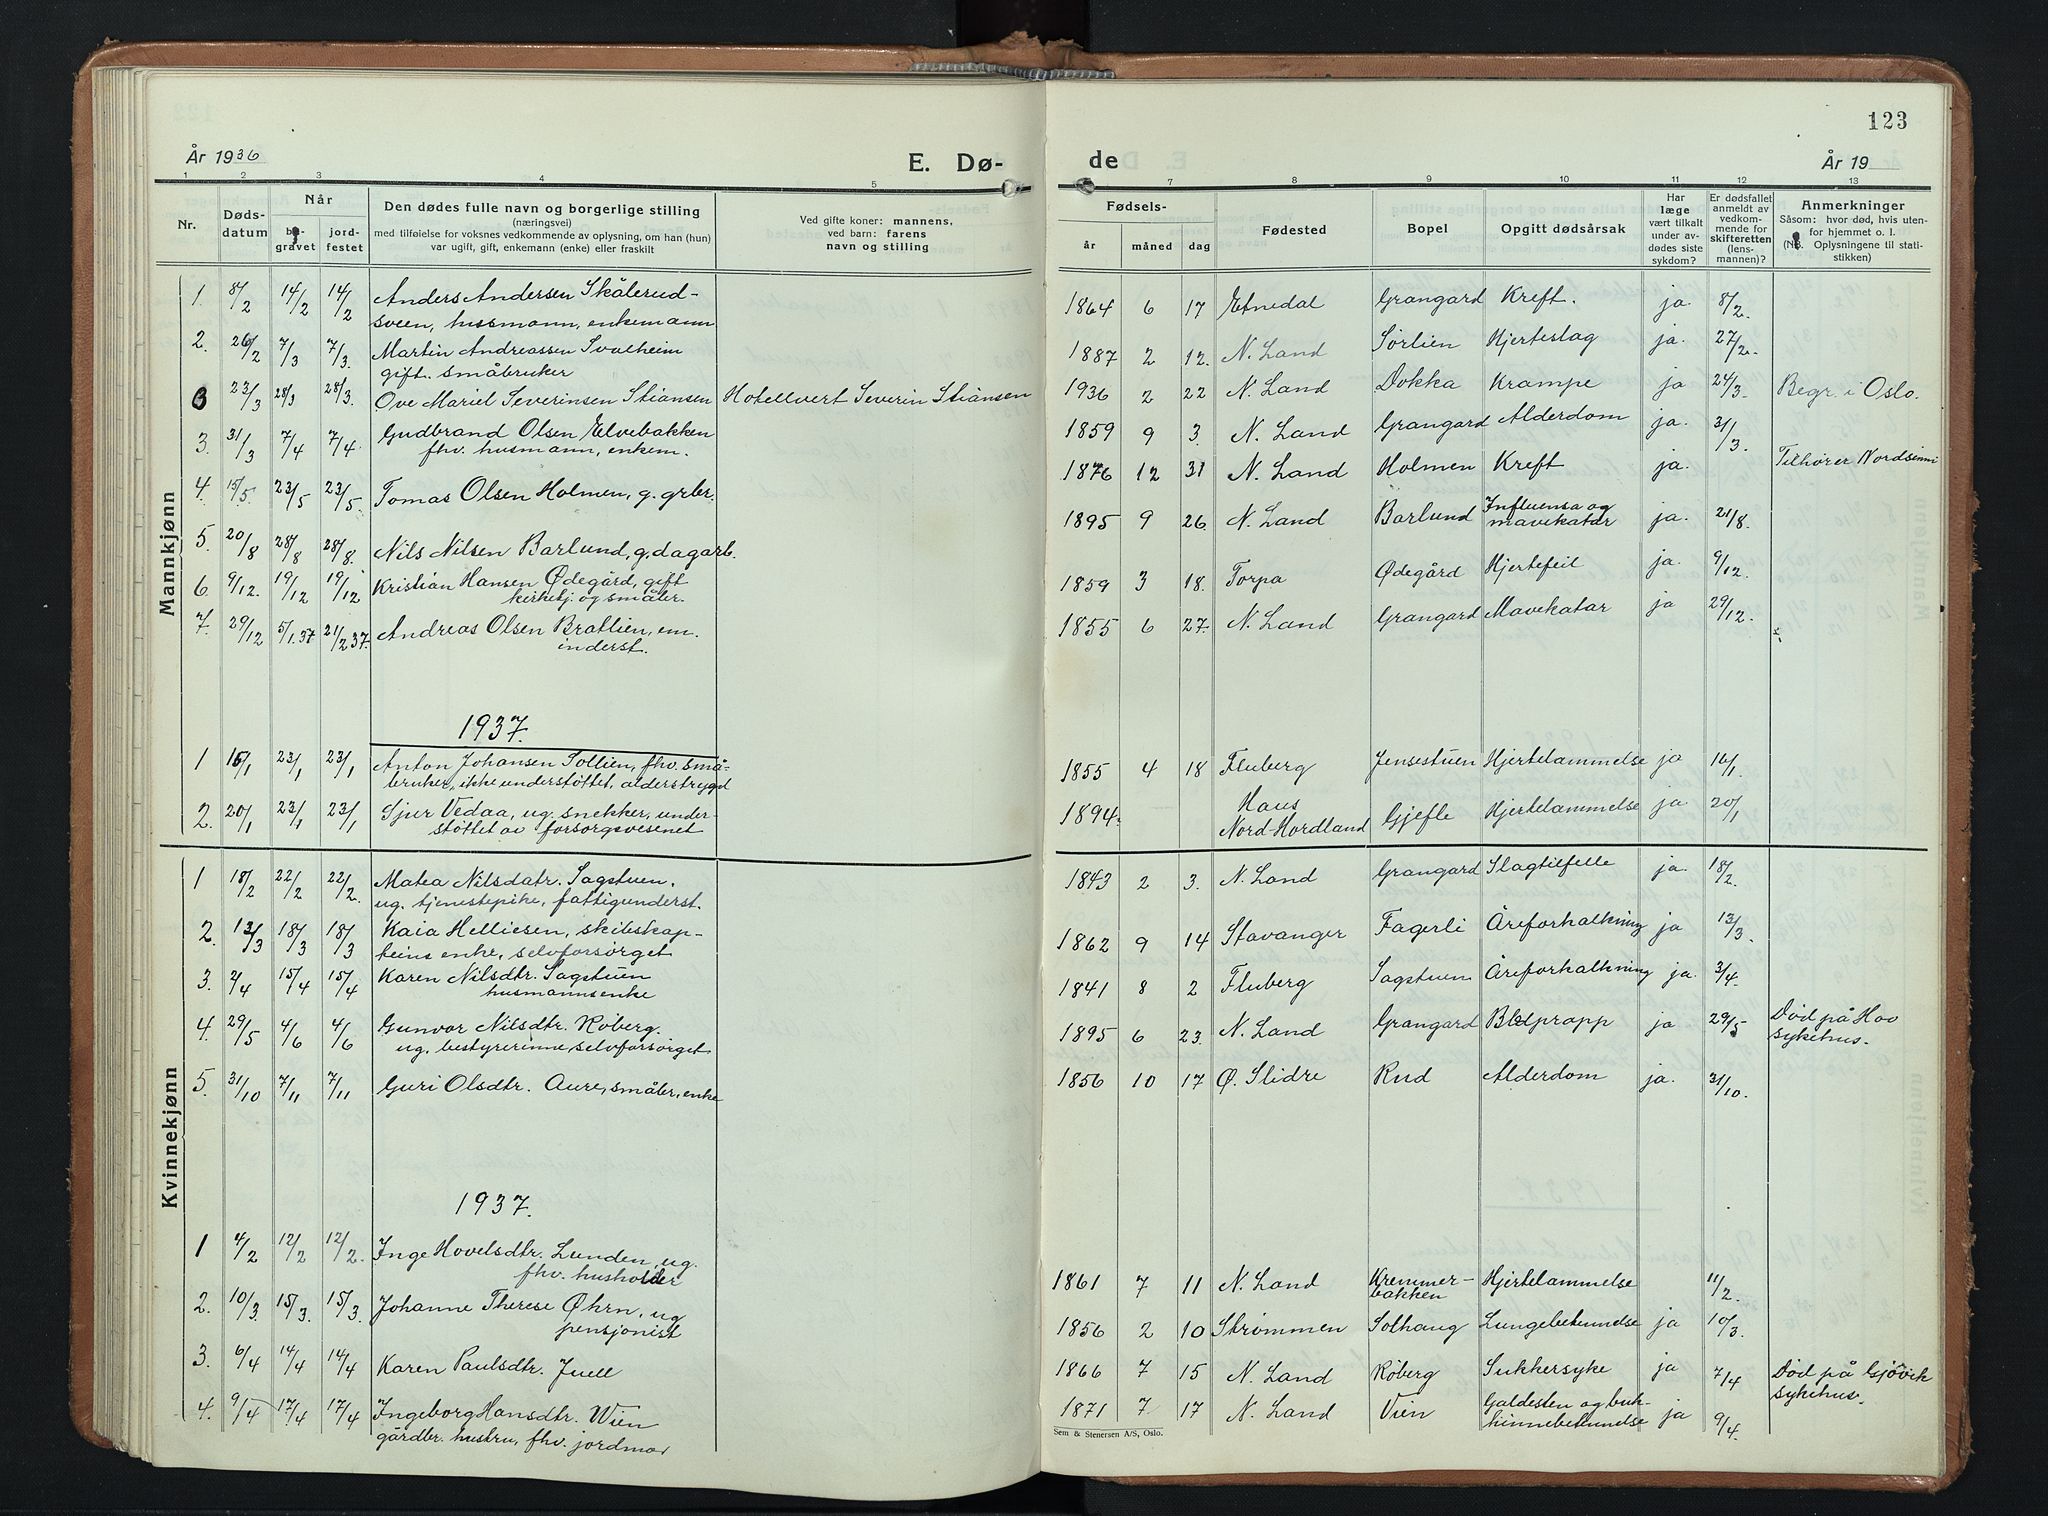 123
År 1936
E. Dø-
de
År 19
1 2 3 4 5
7 8 9 10 11 12 13
Nr.
Døds-
datum
Når
be-
gravet
jord-
festet
Den dødes fulle navn og borgerlige stilling
(næringsvei)
med tilføielse for voksnes vedkommende av oplysning, om han (hun)
var ugift, gift, enkemann (enke) eller fraskilt
Ved gifte koner: mannens,
ved barn: farens
navn og stilling
Fødsels-
år måned dag
Fødested
Bopel
Opgitt dødsårsak
Har
læge
vært tilkalt
under av-
dødes siste
sykdom?
Er dødsfallet
anmeldt av
vedkom-
mende for
skifteretten
(lens-
mannen)?
Anmerkninger
Såsom: hvor død, hvis uten-
for hjemmet o. l.
(NB. Oplysningene til stati-
stikken)
Mannkjønn
1. 8/2 14/2 14/2 Anders Andersen Skålerud-
sveen, hussmann, enkemann
1864 6 17 Etnedal Grangard Kreft. ja. 8/2.
2. 26/2 7/3 7/3. Martin Andreassen Svalheim
gift. småbruker
1887 2 12. N. Land Sørlien Hjerteslag ja. 27/2.
3 23/3 28/3 28/3. Ove Mariel Severinsen Stiansen Hotellvert Severin Stiansen
1936 2 22 N. Land Dokka Krampe ja 24/3. Begr. i Oslo.
3. 31/3 7/4 7/4. Gudbrand Olsen Elvebakken
fhv. husmann, enkem.
1859 9 3. N. Land Grangard Alderdom ja. 31/3.
4. 15/5. 23/5 23/5. Tomas Olsen Holmen, g. grbr.
1876 12 31 N. Land Holmen Kreft ja. Tilhører Nordsinni
5. 20/8 28/8 28/8. Nils Nilsen Barlund, g. dagarb.
1895 9 26. N. Land Barlund Influensa og
mavekatar ja. 21/8.
6. 9/12. 19/12 19/12 Kristian Hansen Ødegård, gift
kirketj. og småbr.
1859 3 18. Torpa Ødegård Hjertefeil ja. 9/12.
7. 29/12 5/1.37 21/2 37. Andreas Olsen Bratlien, em.
inderst.
1855 6 27. N. Land Grangard Mavekatar ja 29/12.
1937.
1 16/1 23/1 23/1 Anton Johansen Sollien, fhv. små-
bruker, ikke understøttet, alderstrygd
1855 4 18 Fluberg Jensestuen Hjertelammelse ja 16/1.
2. 20/1 23/1 23/1 Sjur Vedaa, ug. snekker, under-
støttet av forsorgsvesenet
1894. Haus
Nord-Hordland Gjefle Hjertelammelse ja 20/1
Kvinnekjønn
1 18/2 22/2 22/2. Matea Nilsdatr. Sagstuen.
ug. tjenestepike, fattigunderst.
1843 2 3. N. Land Grangard Slagtilfelle ja. 18/2.
2. 13/3 18/3 18/3 Kaia Helliesen, skibskap-
teins enke, selvforsørget
1862 9 14 Stavanger Fagerli Åreforkalkning ja 13/3.
3. 2/4 15/4 15/4 Karen Nilsdtr. Sagstuen
husmannsenke
1841 8 2 Fluberg Sagstuen Åreforkalkning ja. 3/4.
4. 29/5 4/6 4/6 Gunvor Nilsdtr. Røberg.
ug. bestyrerinne, selvforsørget
1895 6 23. N. Land Grangard Blodpropp ja 29/5 Død på Hov
sykehus.
5. 31/10 7/11 7/11 Guri Olsdtr. Aure, småbr. enke
1856 10 17 Ø. Slidre Rud Alderdom ja. 31/10.
1937.
1 4/2 12/2 12/2. Inge Hovelsdtr. Lunden, ug.
fhv. husholder
1861 7 11 N. Land Kremmer-
bakken Hjertelammelse 11/2.
2. 10/3 15/3. 15/3. Johanne Therese Øhrn, ug
pensjonist
1856 2 10 Strømmen Solhaug Lungebetennelse ja 10/3.
3. 6/4 14/4 14/4 Karen Paulsdtr. Juell
1866 7 15 N. Land Røberg Sukkersyke ja 7/4 Død på Gjøvik
sykehus.
4. 9/4 17/4 17/4 Ingeborg Hansdtr. Wien
gårdbr. hustru, fhv. jordmor
1871 7 17 N. Land Vien Galdesten og buk-
hinnebetennelse ja 9/4.
Sem & Stenersen A/S, Oslo.